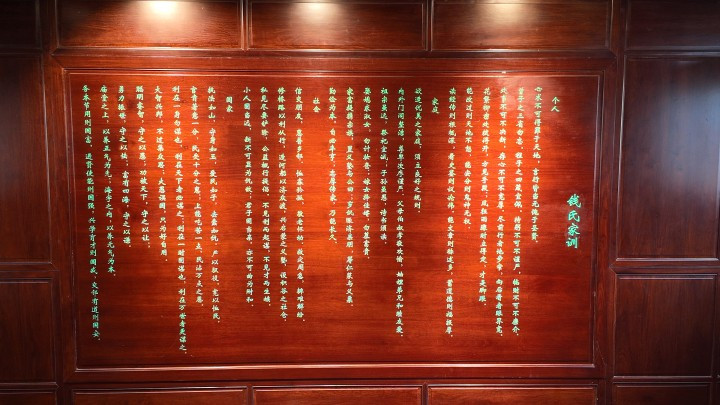 钱氏家训
个人
心术不可得罪于天地，言行皆当无愧于圣贤。
曾子之三省勿忘，程子之四箴宜佩。持躬不可不谨严，临财不可不廉介。
处事不可不决断，存心不可不宽厚。尽前行者地步窄，向后看者眼界宽。
花繁柳密处拨得开，方见手段，风狂雨骤时立得定，才是脚跟。
能改过则天地不怒，能安分则鬼神无权。
读经传则根柢深，看史鉴则议论伟。能文章则称述多，蓄道德则福报厚。
家庭
欲造优美之家庭，须立良好之规则。
内外门闾整洁，尊卑次序谨严。父母伯叔孝敬欢愉，妯娌弟兄和睦友爱。
祖宗虽远，祭祀宜诚，子孙虽愚，诗书须读。
娶媳求淑女，勿计妆奁；嫁女择佳婿，勿慕富贵。
家富提携宗族，置义塾与公田；岁饥赈济亲朋，筹仁浆与义粟。
勤俭为本，自必丰亨；忠厚传家，乃能长久。
社会
信交朋友，惠普乡邻。恤寡矜孤，敬老怀幼。救灾周急，排难解纷。
修桥路以利从行，造河船以济众渡。兴启蒙之义塾，设积谷之社仓。
私见尽要铲除，公益概行提倡。不见利而起谋，不见才而生嫉。
小人固当远，断不可显为仇敌；君子固当亲，亦不可曲为附和。
国家
执法如山，守身如玉，爱民如子，去蠹如仇。严以驭役，宽以恤民。
官肯著意一分，民受十分之惠；上能吃苦一点，民沾万点之恩。
利在一身勿谋也，利在天下者必谋之；利在一时固谋也，利在万世者更谋之。
大智兴邦，不过集众思；大愚误国，只为好自用。
聪明睿智，守之以愚；功被天下，守之以让；
勇力振世，守之以怯；富有四海，守之以谦。
庙堂之上，以养正气为先；海宇之内，以养元气为本。
务本节用则国富，进贤使能则国强，兴学育才则国盛，交邻有道则国安。